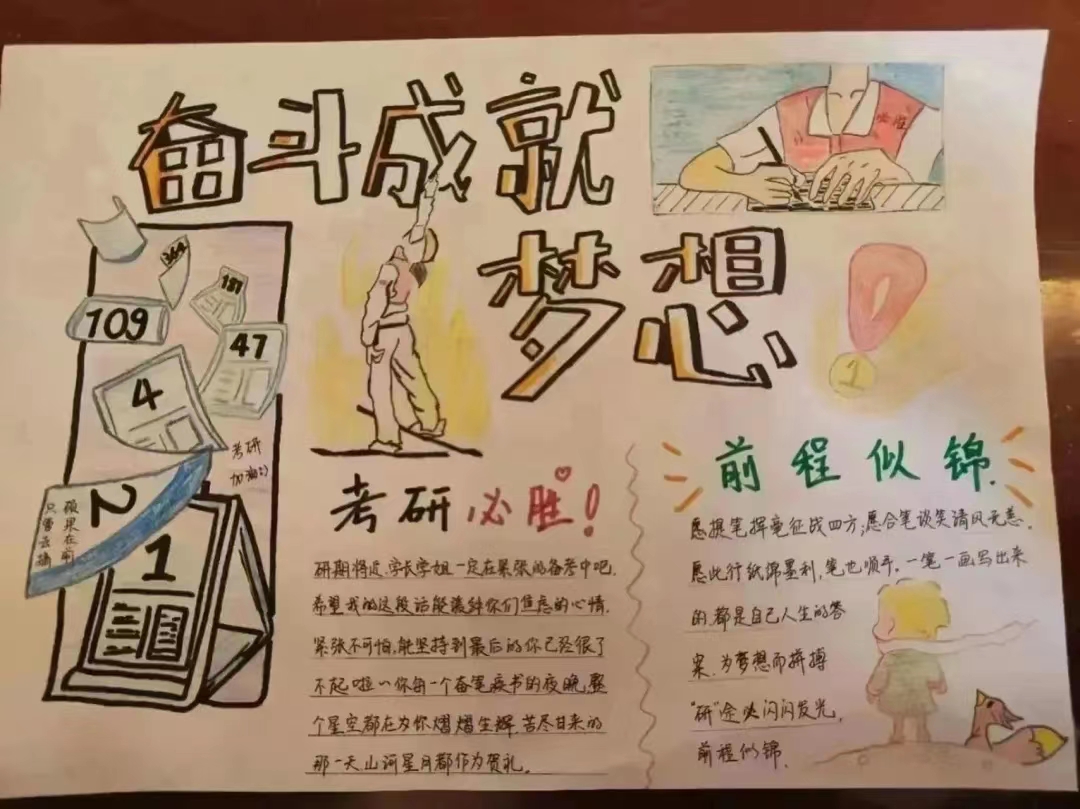 奋斗成就
梦想
必胜
364
157
109
47
4
考研
加油:)
2
硕果在前
只需去摘
1
1
考研必胜!
研期将近,学长学姐一定在紧张的备考中吧,
希望我的这段话能缓解你们焦虑的心情.
紧张不可怕,能坚持到最后的你已经很了
不起啦~你每一个奋笔疾书的夜晚,整
个星空都在为你熠熠生辉,苦尽甘来的
那一天,山河星月都作为贺礼。
前程似锦.
愿提笔挥毫征战四方,愿合笔谈笑清风无恙.
愿此行纸锦墨利,笔也顺手.一笔一画写出来
的,都是自己人生的答
案.为梦想而拼搏
"研"途必闪闪发光,
前程似锦.